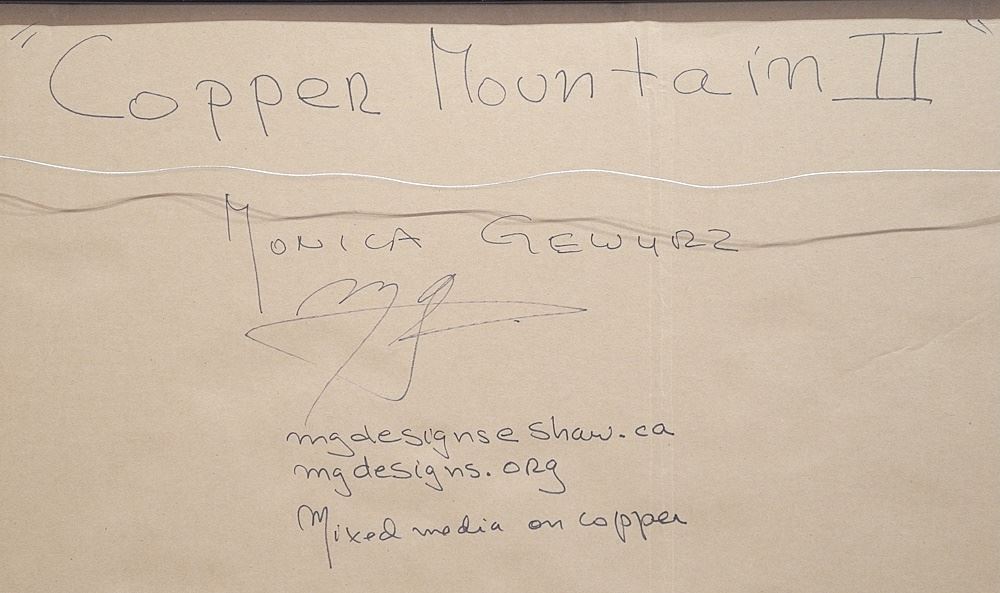 "Copper Mountain II"
Monica Gewurz
mg
mgdesigns@shaw.ca
mgdesigns.org
Mixed media on copper